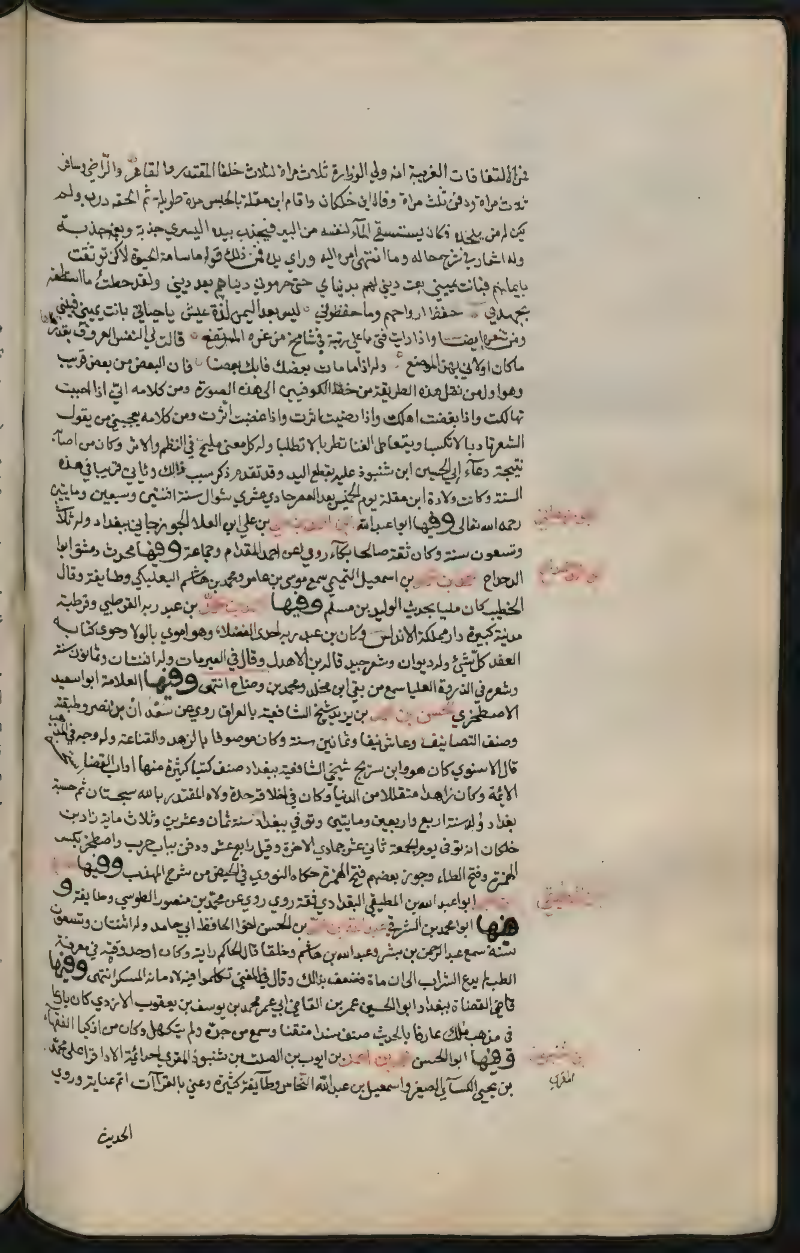 ومن الاتفاقات الغريبة انه ولي الوزارة ثلاث مراة لثلاث خلفا المقتدر والقاهر والراضي وسافر
ثلاث مراة ودفن ثلث مراة وقال ابن خلكان واقام ابن مقلة بالحبس مدة طويلة ثم لحقه درب ولم
يكن له من يخدمه فكان يستسقي المآء لنفسه من البير فيجذب بيده اليسري جذبة وبفمه جذبة
وله اشعار في شرح حاله وما انتهى امره اليه ورثى يده فمن ذلك قوله ما سامة الحيوة لاكن توثقت
بايمانهم فبانت يميني بعت ديني لهم بدنياي حتى حرموني دنياهم بعد ديني ولقد حطت ما استطعت
بجهدي حفظ ارواحهم وما حفظوني ليس بعد اليمين لذة عيش ياحياتي بانت يميني فبيني
ومن شعره ايضا واذا رايت فتى باعلى رتبة في شامخ من عزه المترفع قالت لي النفس العروف بقدرها
ما كان اولاني بهذا الموضع وله اذا ما مات بعضك فابك بعضا فان البعض من بعض قريب
وهو اول من نقل هذه الطريقة من خط الكوفيين الى هذه الصورة ومن كلامه اني اذا احببت
تهالكت واذا بغضت اهلكت واذا رضيت اثرت واذا غضبت أثرت ومن كلامه يعجبني من يقول
الشعر تادبا لا تكسبا ويتعاطى الغنا تطربا لا تطلبا وله كل معنى مليح في النظم والنثر وكان من اصابه
نتيجة دعآء ابي الحسين ابن شنبوذ عليه بقطع اليد وقد تقدم ذكر سبب ذلك وثاني قريبا في هذه
السنة وكانت ولادة ابن مقلة يوم الخميس بعد العصر حادي عشري شوال سنة اثنتين وسبعين ومايتين
رحمه الله تعالى وفيها ابو عبد الله بن علي ابن العلا الجوزجاني ببغداد وله ثلاث
وتسعون سنة وكان ثقة صالحا بكآء روى عن احمد المقدام وجماعة وفيها محدث دمشق ابو
الدحداح بن اسمعيل التميمي سمع موسى بن عامر ومحمد بن هاشم البعلبكي وطايفة وقال
الخطيب كان مليا بحديث الوليد بن مسلم وفيها بن عبد ربه القرطبي وقرطبة
مدينة كبيرة دار مملكة الاندلس وكان بن عبد ربه احد الفضلا وهو اموي بالولا وحوى كتابه
العقد كل شيئ وله ديوان وشعر جيد قاله ابن الاهدل وقال في العبر مات وله اثنتان وثمانون سنة
وشعره في الذروة العليا سمع من بقي ابن مخلد ومحمد بن وضاح انتهى وفيها العلامة ابو سعيد
الاصطخري الحسن بن احمد بن يزيد شيخ الشافعية بالعراق روى عن سعدان بن نصر وطبقته
وصنف التصانيف وعاش نيفا وثمانين سنة وكان موصوفا بالزهد والقناعة وله وجه في المذهب
قال الاسنوي كان هو وابن سريج شيخي الشافعية ببغداد صنف كتبا كثيرة منها اداب القضا
الائمة وكان زاهدا متقللا من الدنيا وكان في اخلاقه حدة ولاه المقتدر بالله سجستان ثم حسبة
بغداد ولد سنة اربع واربعين ومايتين وتوفي ببغداد سنة ثمان وعشرين وثلاث ماية زاد بن
خلكان انه توفي يوم الجمعة ثاني عشر جمادي الاخرة وقيل رابع عشر ودفن بباب حرب واصطخر بكسر
الهمزة وفتح الطاء وجوز بعضهم فتح الهمزة حكاه النووي في الحيض من شرح المهذب وفيها
ابو عبد الله بن المطبقي البغدادي ثقة روى عن محمد بن منصور الطوسي وطايفة و
فيها ابو محمد بن الشرقي بن الحسن اخو الحافظ ابي حامد وله اثنتان وتسعون
سنة سمع عبد الرحمن بن بشر وعبد الله بن هاشم وخلقا قال الحاكم رايته وكان اوحد وقته في معرفة
الطب لم يدع الشراب الى ان مات فضعف بذلك وقال في المغني تكلموا فيه لادمانه المسكر انتهى وفيها
قاضي القضاة ببغداد ابو الحسين عمر بن القاضي ابي عمر محمد بن يوسف بن يعقوب الازدي كان بارعا
في مذهب مالك عارفا بالحديث صنف مسندا متقنا وسمع من جده ولم يتكهل وكان من اذكيا الفقهاء
وفيها ابو الحسن محمد بن احمد بن ايوب بن الصلت بن شنبوذ المقري احد ائمة الادا قرا على محمد
بن يحيى الكسآي الصغير واسمعيل بن عبد الله النحاس وطآيفة كثيرة وعني بالقراآت اتم عناية وروى
المقري
الحديث